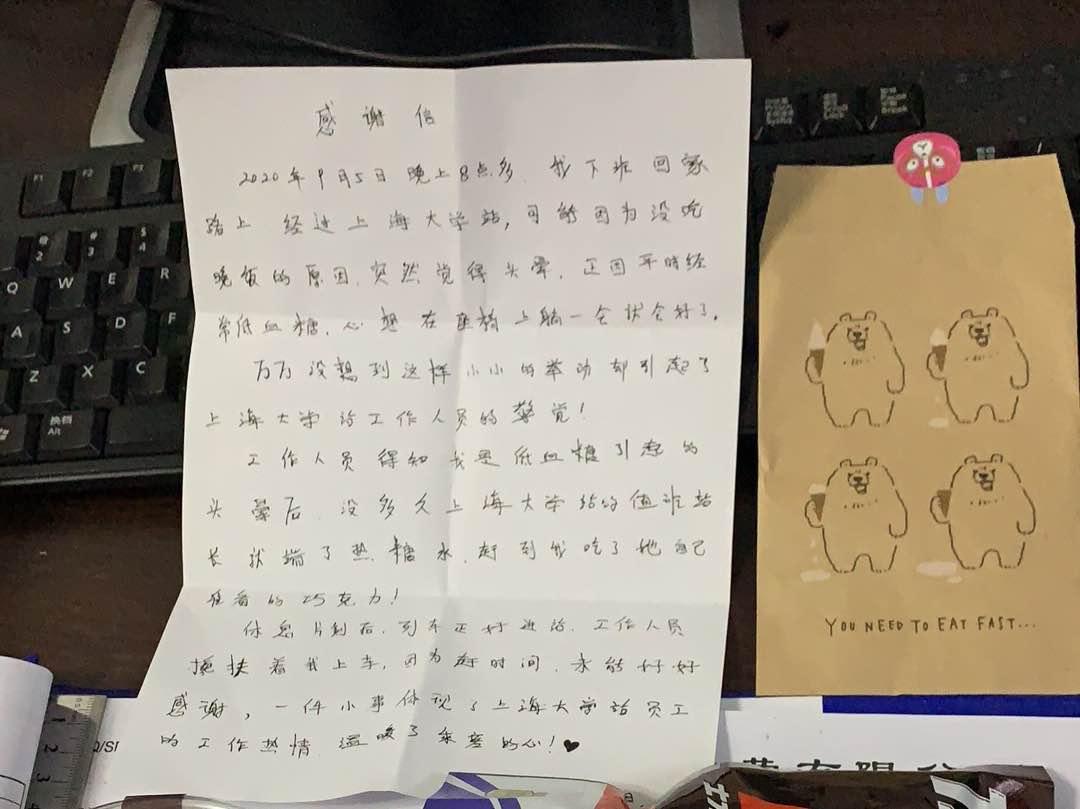 感谢信
2020年9月5日晚上8点多，我下班回家
路上 经过上海大学站，可能因为没吃
晚饭的原因，突然觉得头晕，正因平时经
常低血糖，心想在座椅上躺一会就会好了。
万万没想到这样小小的举动却引起了
上海大学站工作人员的警觉！
工作人员得知我是低血糖引起的
头晕后，没多久上海大学站的值班站
长就端了热糖水，赶到我吃了她自己
的巧克力！
休息片刻后，列车正好进站，工作人员
搀扶着我上车，因为赶时间，未能好好
感谢，一件小事体现了上海大学站员工
的工作热情 温暖了乘客的心！♥
YOU NEED TO EAT FAST...
F1
F2
F3
@
2
#
3
$
4
Q
W
E
R
A
S
D
F
Z
X
C
换档
Alt
Q/SF
1
2
3
有限公